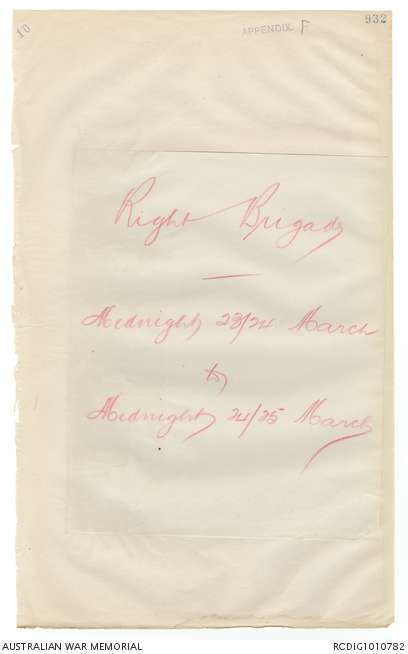 10
APPENDIX F
932
Right Brigade
Midnight 23/24 March
to
Midnight 24/25 March
AUSTRALIAN WAR MEMORIAL
RCDIG1010782